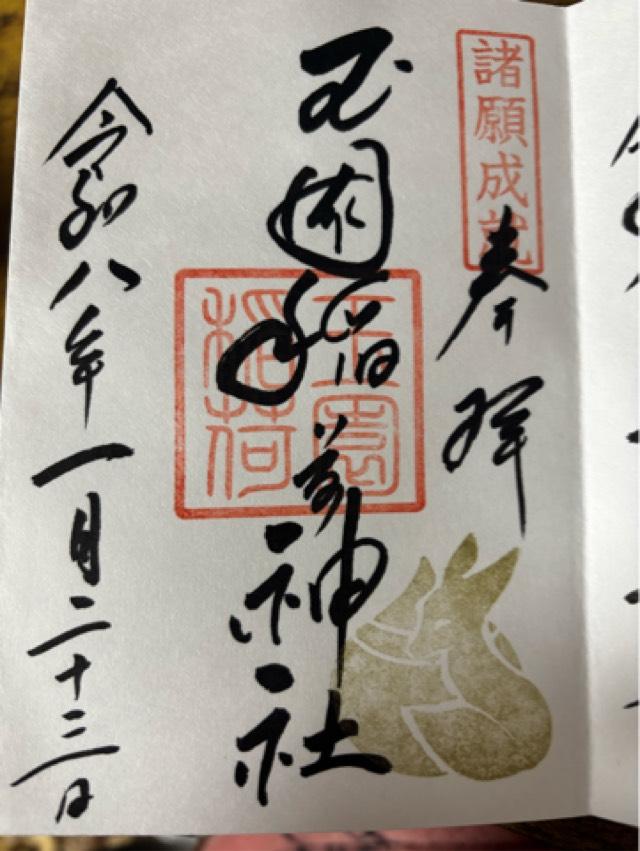 諸願成就
奉拝
玉圀稲荷神社
玉圀稲荷
令和八年一月二十三日